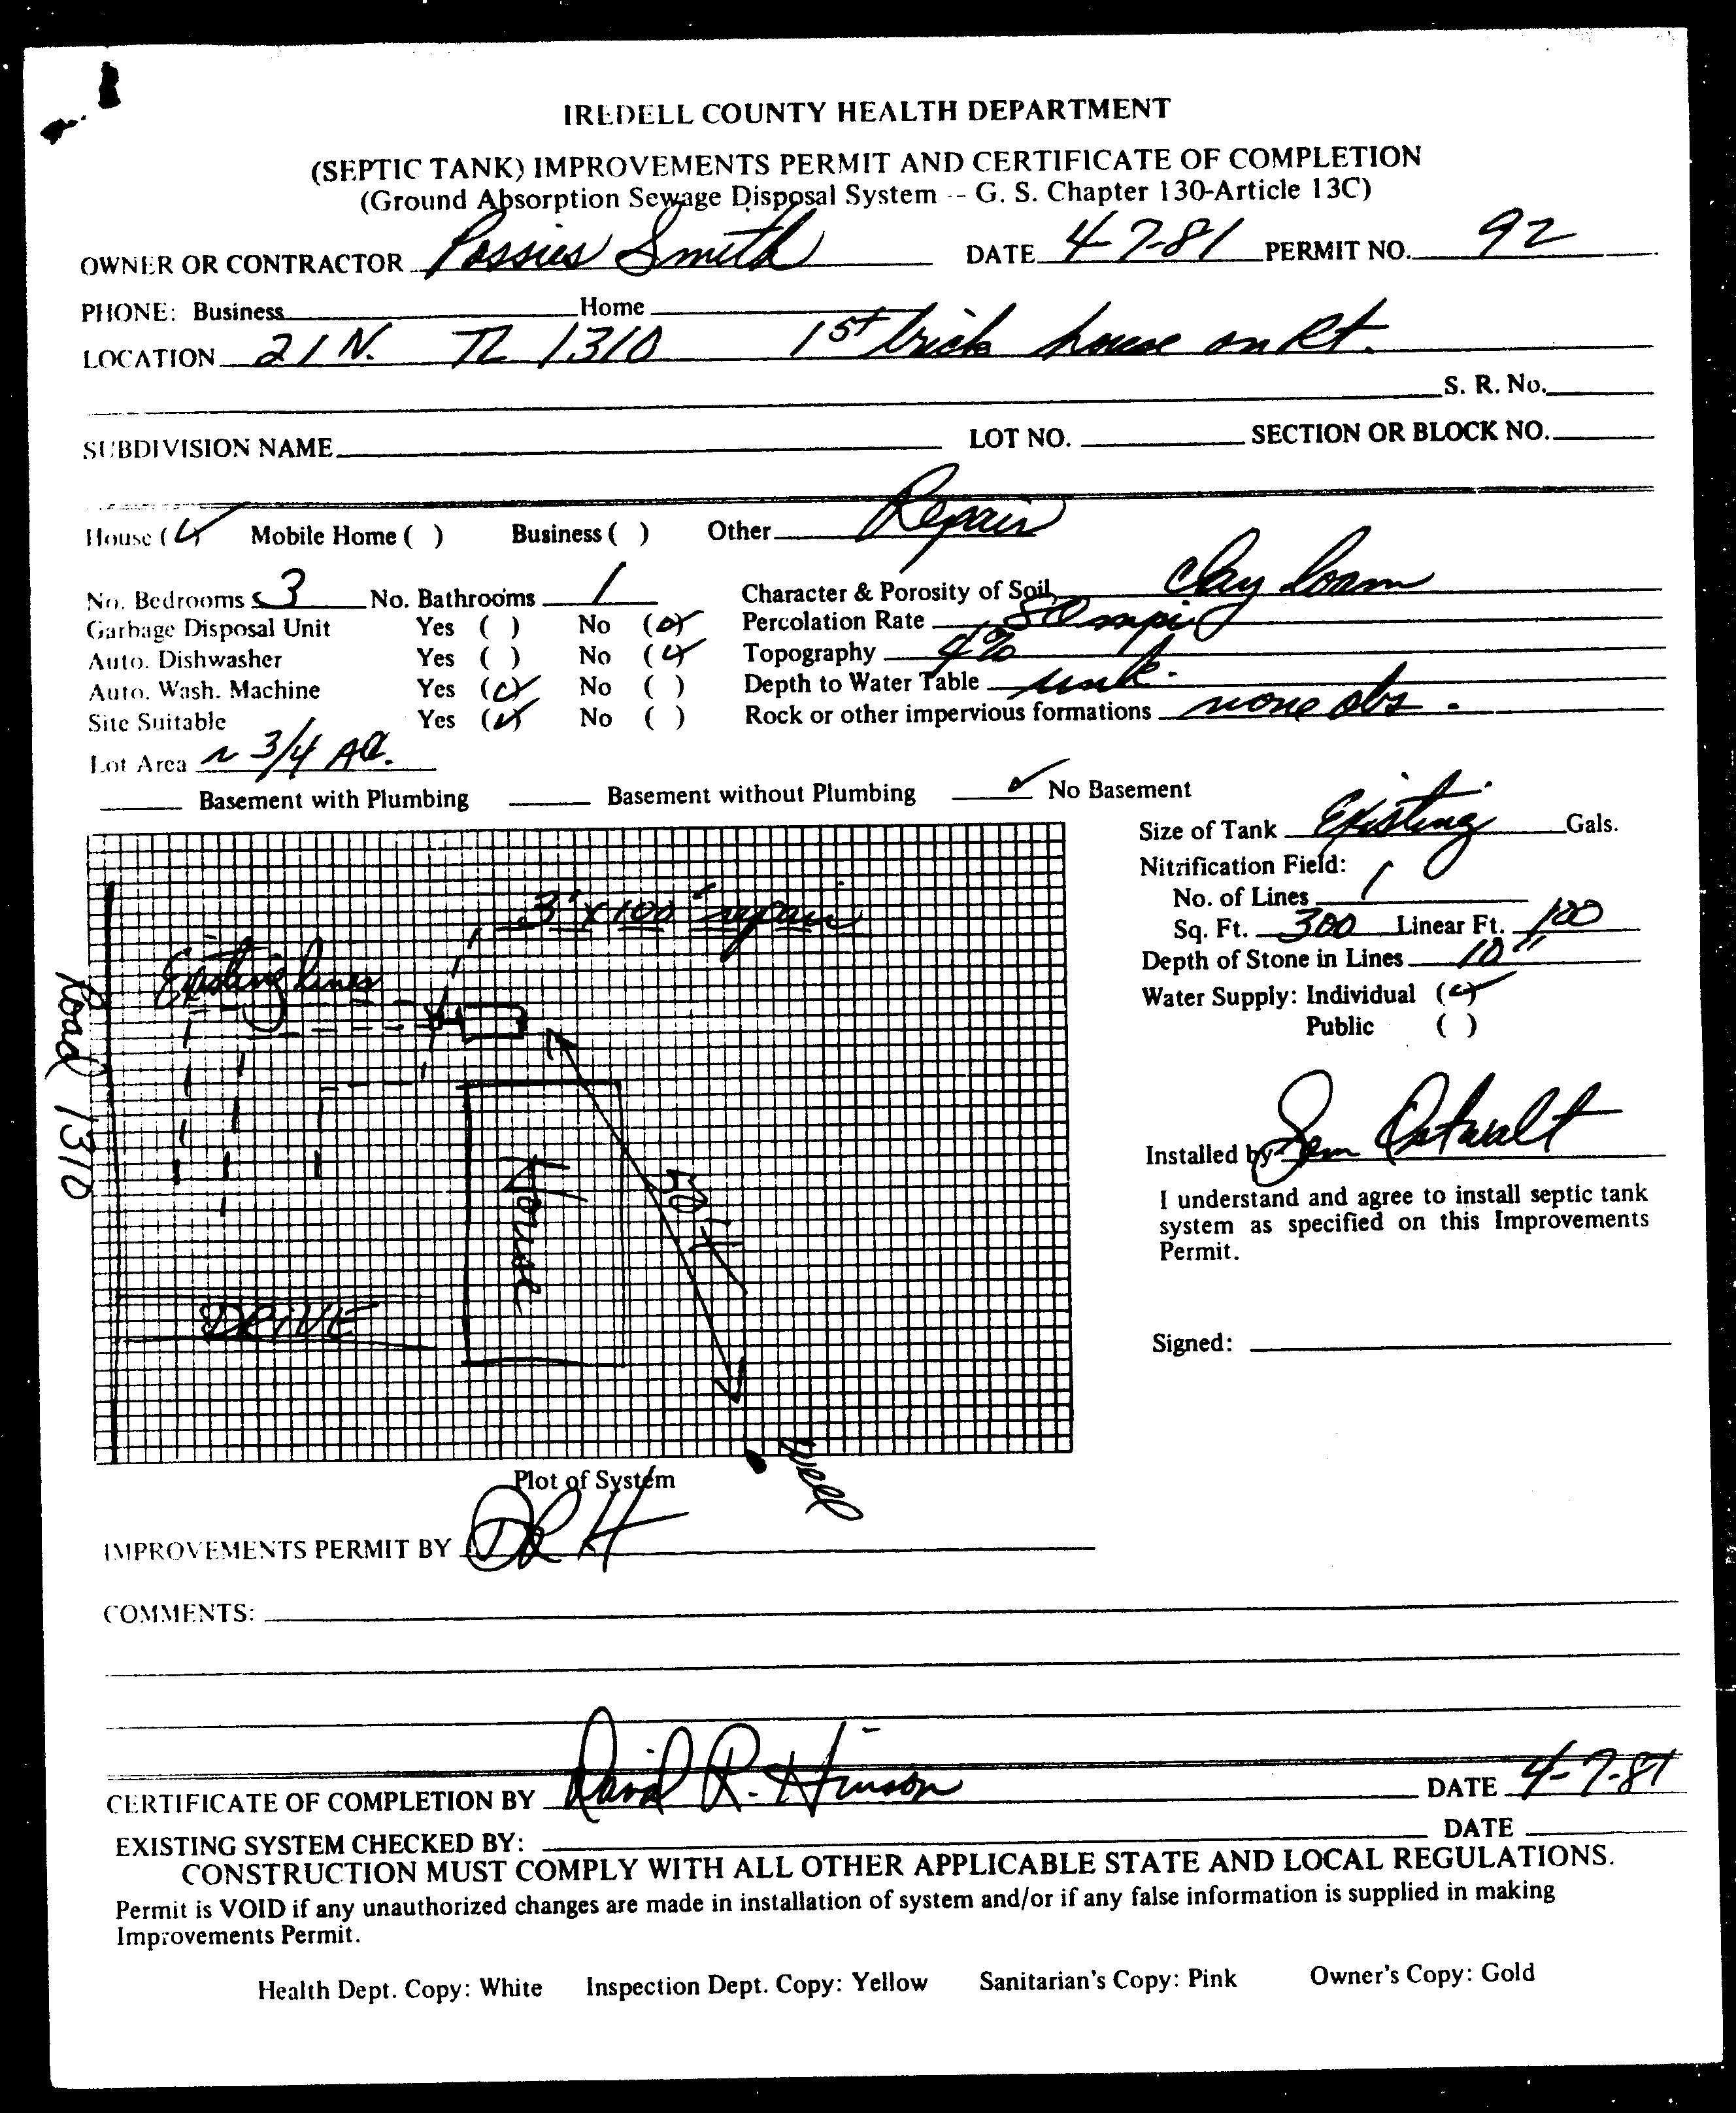 IREDELL COUNTY HEALTH DEPARTMENT
(SEPTIC TANK) IMPROVEMENTS PERMIT AND CERTIFICATE OF COMPLETION
(Ground Absorption Sewage Disposal System -- G. S. Chapter 130-Article 13C)
OWNER OR CONTRACTOR Smith DATE 4-7-81 PERMIT NO. 92
PHONE: Business Home
LOCATION 21 N. TL 1310 1st brick house on Rt.
S. R. No.
SUBDIVISION NAME LOT NO. SECTION OR BLOCK NO.
House (✓) Mobile Home ( ) Business ( ) Other Repair
No. Bedrooms 3 No. Bathrooms 1 Character & Porosity of Soil clay loam
Garbage Disposal Unit Yes ( ) No (✓) Percolation Rate 80 mpi
Auto. Dishwasher Yes ( ) No (✓) Topography 4%
Auto. Wash. Machine Yes (✓) No ( ) Depth to Water Table unk.
Site Suitable Yes (✓) No ( ) Rock or other impervious formations none obs.
Lot Area ~ 3/4 AC.
Basement with Plumbing Basement without Plumbing ✓ No Basement
Size of Tank Existing Gals.
Nitrification Field:
No. of Lines 1
Sq. Ft. 300 Linear Ft. 100
Depth of Stone in Lines 10"
Water Supply: Individual (✓)
Public ( )
3' x 100' repair
Existing lines
Road 1310
House
50 ft
DRIVE
well
Installed by Sam
I understand and agree to install septic tank
system as specified on this Improvements
Permit.
Signed:
Plot of System
IMPROVEMENTS PERMIT BY DRH
COMMENTS:
CERTIFICATE OF COMPLETION BY David R. Hinson DATE 4-7-81
EXISTING SYSTEM CHECKED BY: DATE
CONSTRUCTION MUST COMPLY WITH ALL OTHER APPLICABLE STATE AND LOCAL REGULATIONS.
Permit is VOID if any unauthorized changes are made in installation of system and/or if any false information is supplied in making
Improvements Permit.
Health Dept. Copy: White Inspection Dept. Copy: Yellow Sanitarian's Copy: Pink Owner's Copy: Gold